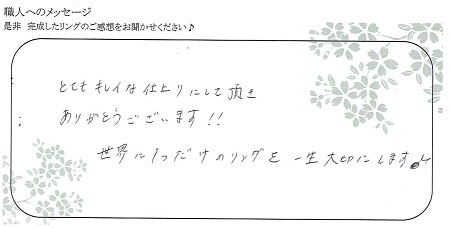 職人へのメッセージ
是非 完成したリングのご感想をお聞かせください♪
とてもキレイな仕上りにして頂き
ありがとうございます!!
世界に1つだけのリングを一生大切にします♪